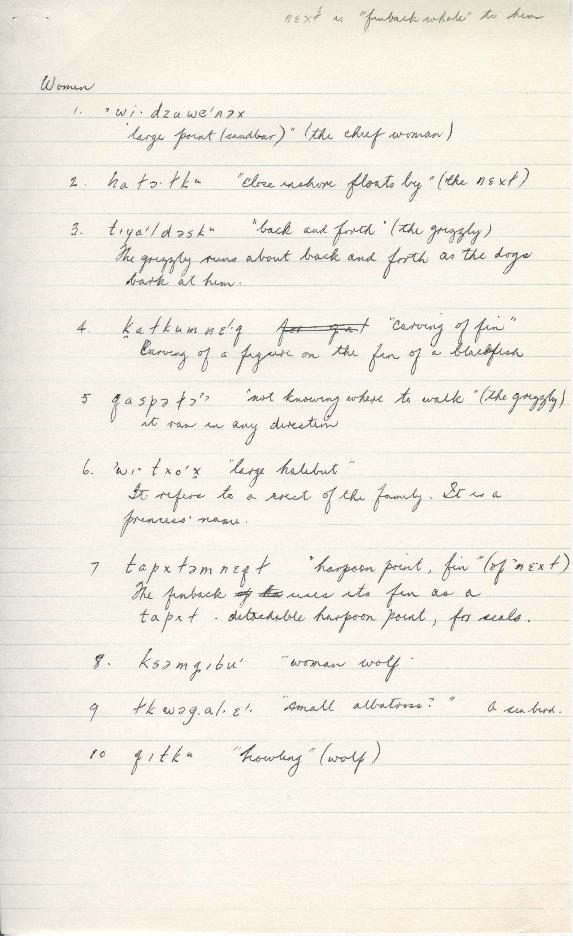 nɛxɫ is "finback whale" to him
Women
1. 'wi· dzuwe'nəx
"large point (sandbar)" (the chief woman)
2. hatɔ·tkᵘ "close inshore floats by" (the nɛxɫ)
3. tɪya'ldəskᵘ "back and forth" (the grizzly)
The grizzly runs about back and forth as the dogs
bark at him.
4. ḳatkumnɛ'·q "carving of fin"
Carving of a figure on the fin of a blackfish
5 qaspəɫɔ'' "not knowing where to walk" (the grizzly)
it ran in any direction
6. 'wi·txo'x̣ "large halibut"
It refers to a crest of the family. It is a
princess' name.
7 tapxɫəmnɛqɫ "harpoon point, fin" (of nɛxɫ)
The finback uses its fin as a
tapxɫ - detachable harpoon point, for seals.
8. ksəmgɪbu' "woman wolf"
9 ɫkwəg.al·ɛ'· "small albatross?" A sea bird.
10 qɪtkᵘ "howling" (wolf)